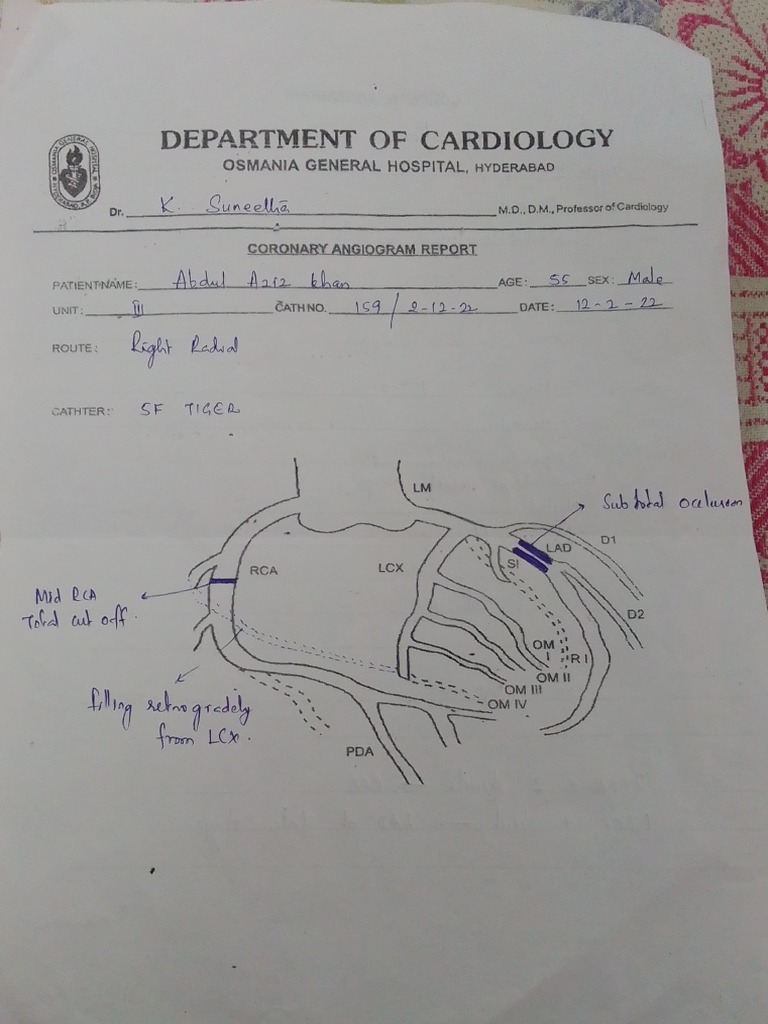 DEPARTMENT OF CARDIOLOGY
OSMANIA GENERAL HOSPITAL, HYDERABAD
Dr. K. Suneetha M.D., D.M., Professor of Cardiology
CORONARY ANGIOGRAM REPORT
PATIENT NAME: Abdul Aziz Khan AGE: 55 SEX: Male
UNIT: III CATH NO. 159 / 2-12-22 DATE: 12-2-22
ROUTE: Right Radial
CATHTER: 5F TIGER
LM
Sub total occlusion
D1
LAD
RCA
LCX
SI
Mid RCA
Total cut off.
D2
OM
I
R I
OM II
OM III
OM IV
filling retrogradely
from LCx.
PDA